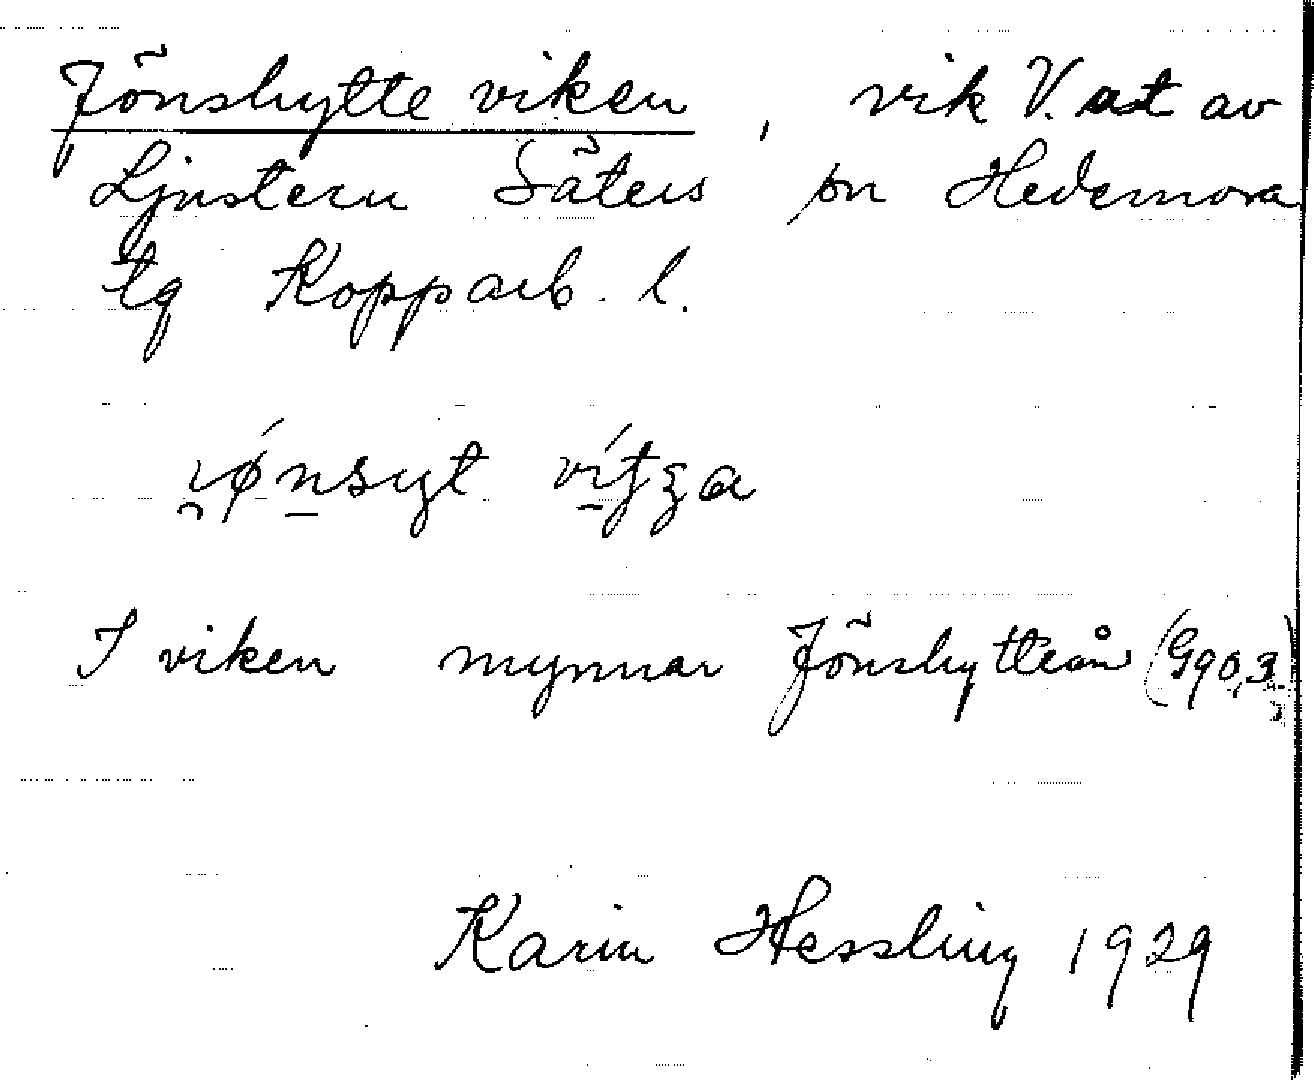 Jönshytte viken, vik V. ut av
Ljustern Säters sn Hedemora
tg Kopparb. l.
I viken mynnar Jönshytteån (Gq0,3)
Karin Hessling 1929